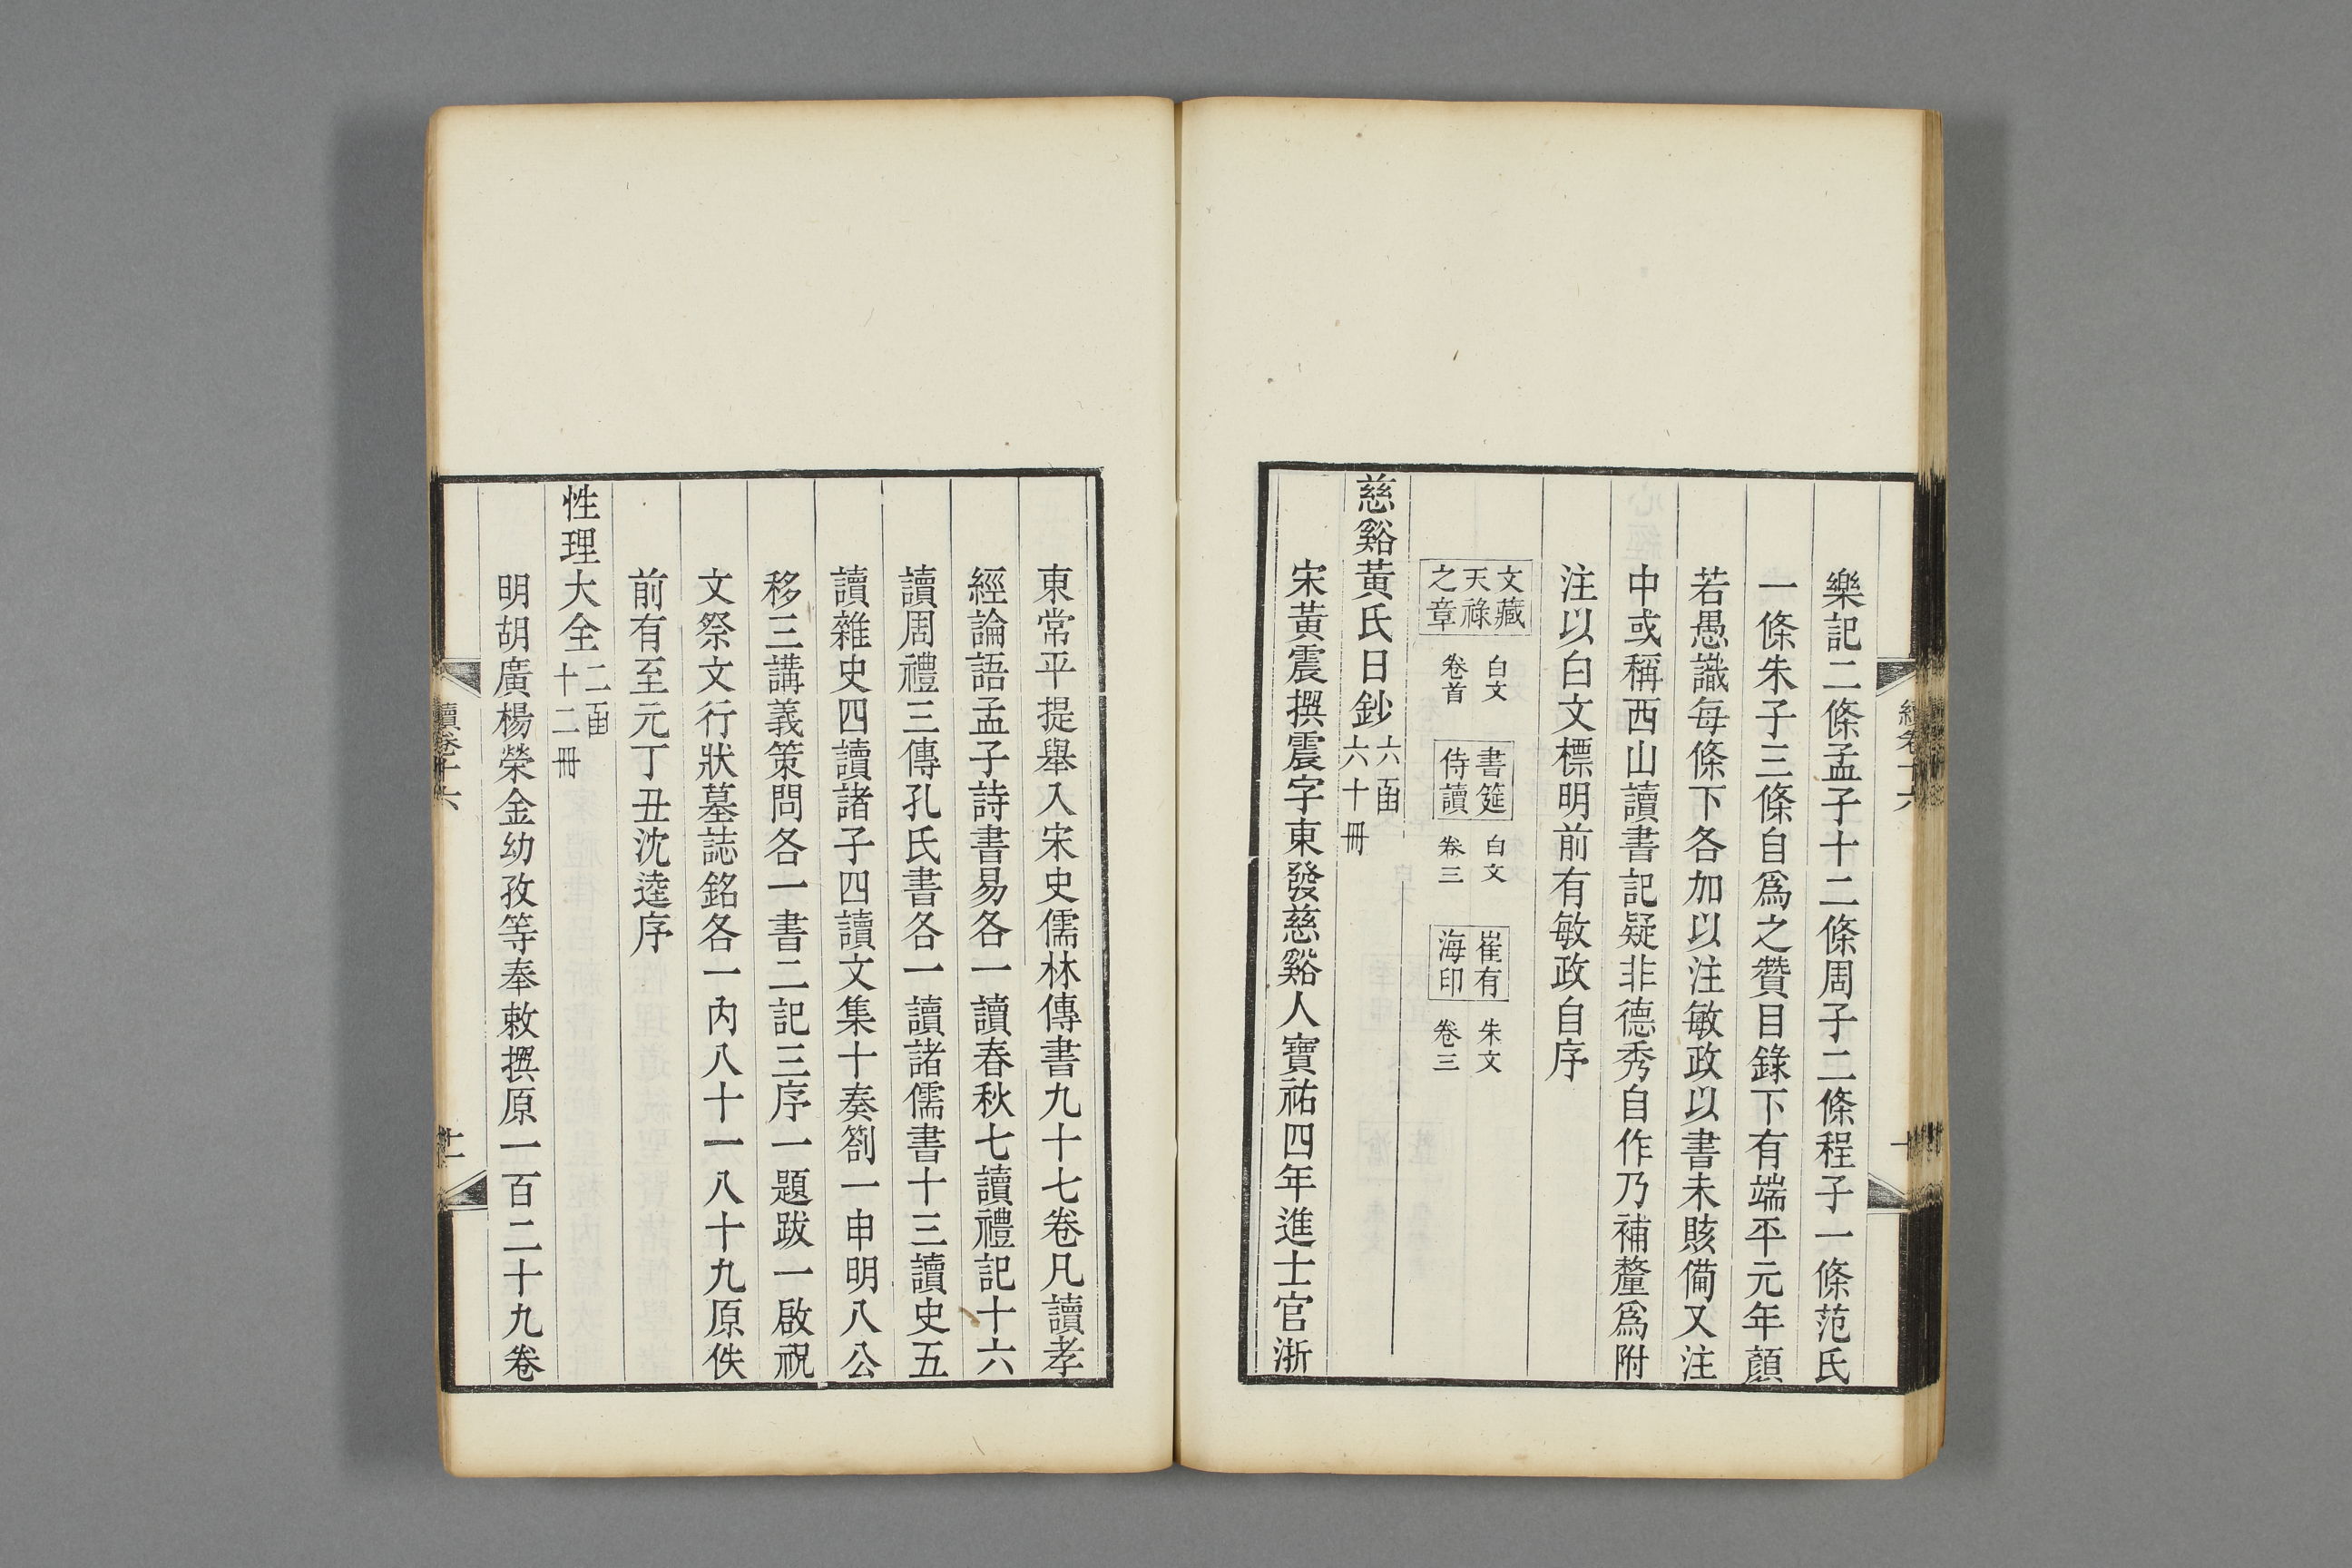 樂記二條孟子十二條周子二條程子一條范氏
一條朱子三條自爲之贊目錄下有端平元年顏
若愚識每條下各加以注敏政以書未賅備又注
中或稱西山讀書記疑非德秀自作乃補釐爲附
注以白文標明前有敏政自序
文藏
天祿
之章
白文
卷首
書筵
侍讀
白文
卷三
崔有
海印
朱文
卷三
慈谿黃氏日鈔
六函
六十冊
宋黃震撰震字東發慈谿人寶祐四年進士官浙
東常平提舉入宋史儒林傳書九十七卷凡讀孝
經論語孟子詩書易各一讀春秋七讀禮記十六
讀周禮三傳孔氏書各一讀諸儒書十三讀史五
讀雜史四讀諸子四讀文集十奏劄一申明八公
移三講義策問各一書二記三序一題跋一啟祝
文祭文行狀墓誌銘各一內八十一八十九原佚
前有至元丁丑沈逵序
性理大全
二函
十二冊
明胡廣楊榮金幼孜等奉敕撰原一百二十九卷
續卷十六
十一